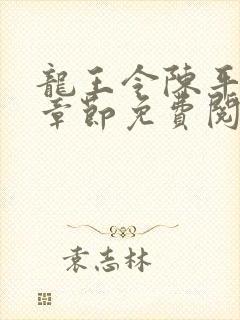 龍王令陳平
章節免費閱
袁志林